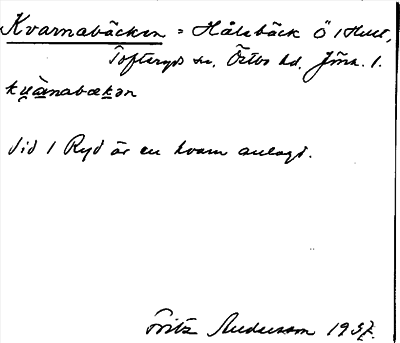 Kvarnabäcken = Hålabäck Ö i Hul,
Tofteryds sn. Östbo hd. Jönk. l.
kṷànabækən
Vid i Ryd är en kvarn anlagd.
Fritz Andersson 1937.